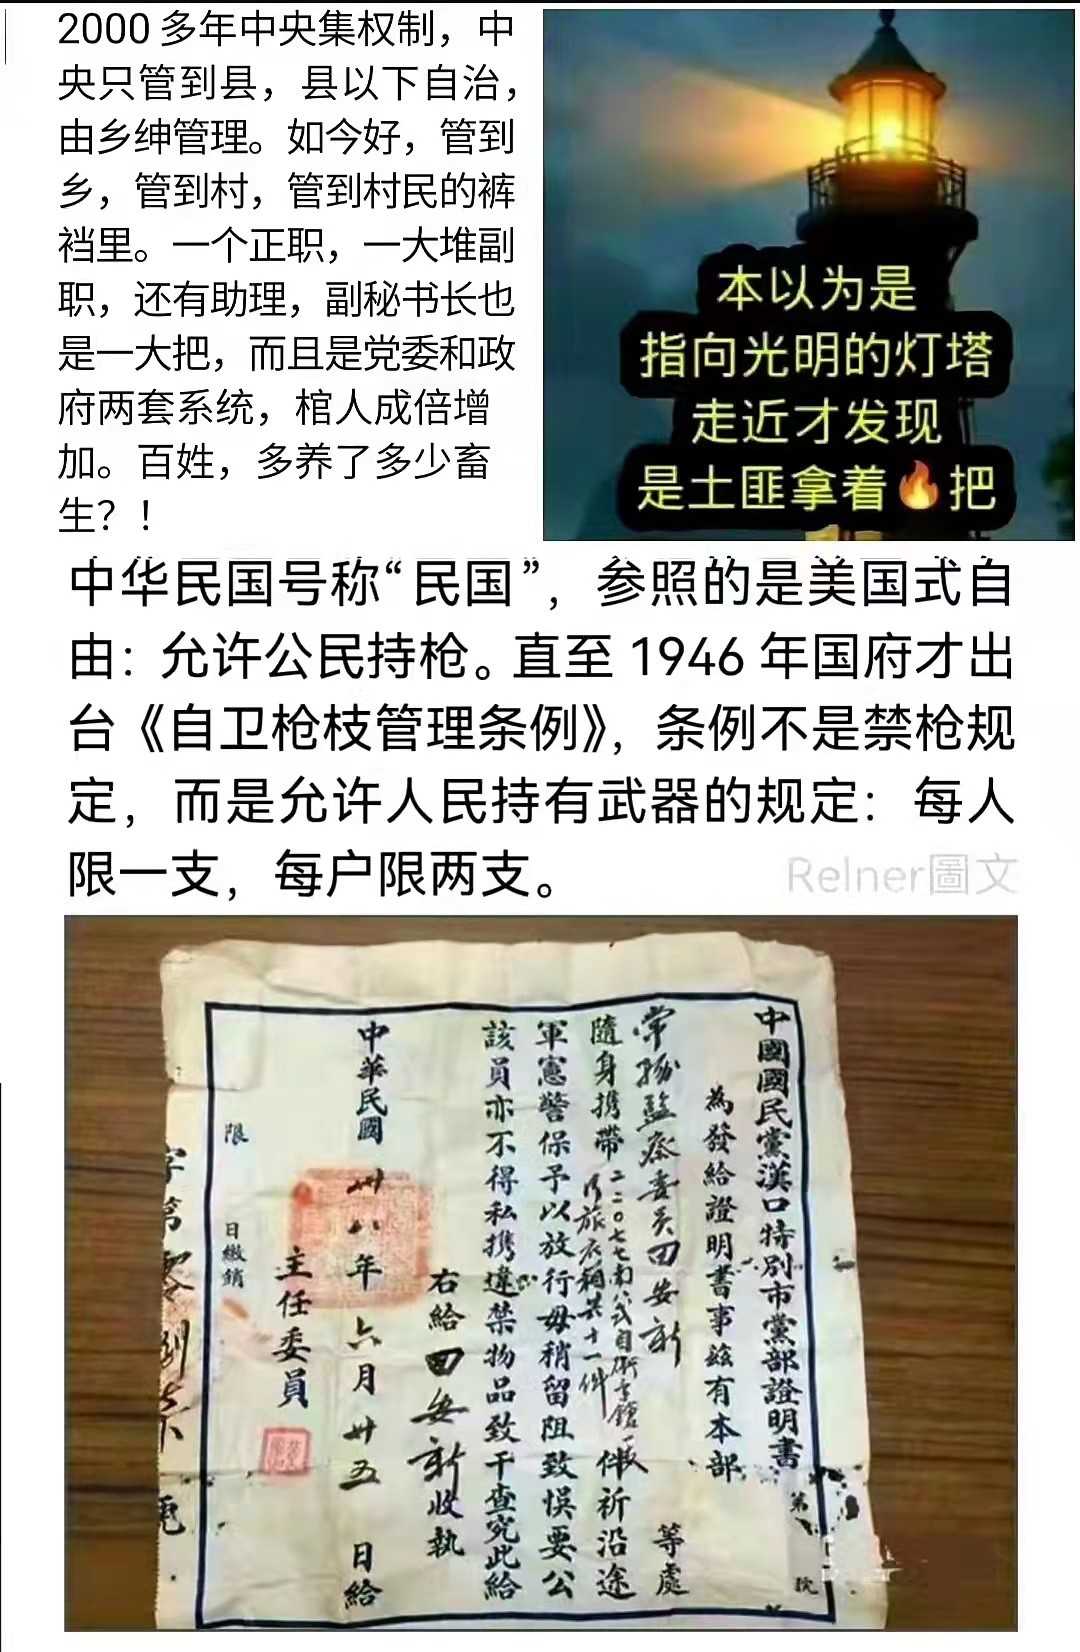 2000多年中央集权制，中
央只管到县，县以下自治，
由乡绅管理。如今好，管到
乡，管到村，管到村民的裤
裆里。一个正职，一大堆副
职，还有助理，副秘书长也
是一大把，而且是党委和政
府两套系统，棺人成倍增
加。百姓，多养了多少畜
生？！
本以为是
指向光明的灯塔
走近才发现
是土匪拿着🔥把
中华民国号称“民国”，参照的是美国式自
由：允许公民持枪。直至1946年国府才出
台《自卫枪枝管理条例》，条例不是禁枪规
定，而是允许人民持有武器的规定：每人
限一支，每户限两支。
Relner圖文
中國國民黨漢口特別市黨部證明書
第 號
為發給證明書事茲有本部
常務監察委員田安新 等處
隨身携帶 二二〇七七南八式自衛手鎗一枝 件祈沿途
行旅衣箱共十一件
軍憲警保予以放行毋稍留阻致悮要公
該員亦不得私携違禁物品致干查究此給
右給田安新收執
中華民國卅八年六月廿五日給
主任委員
限 日繳銷
字第